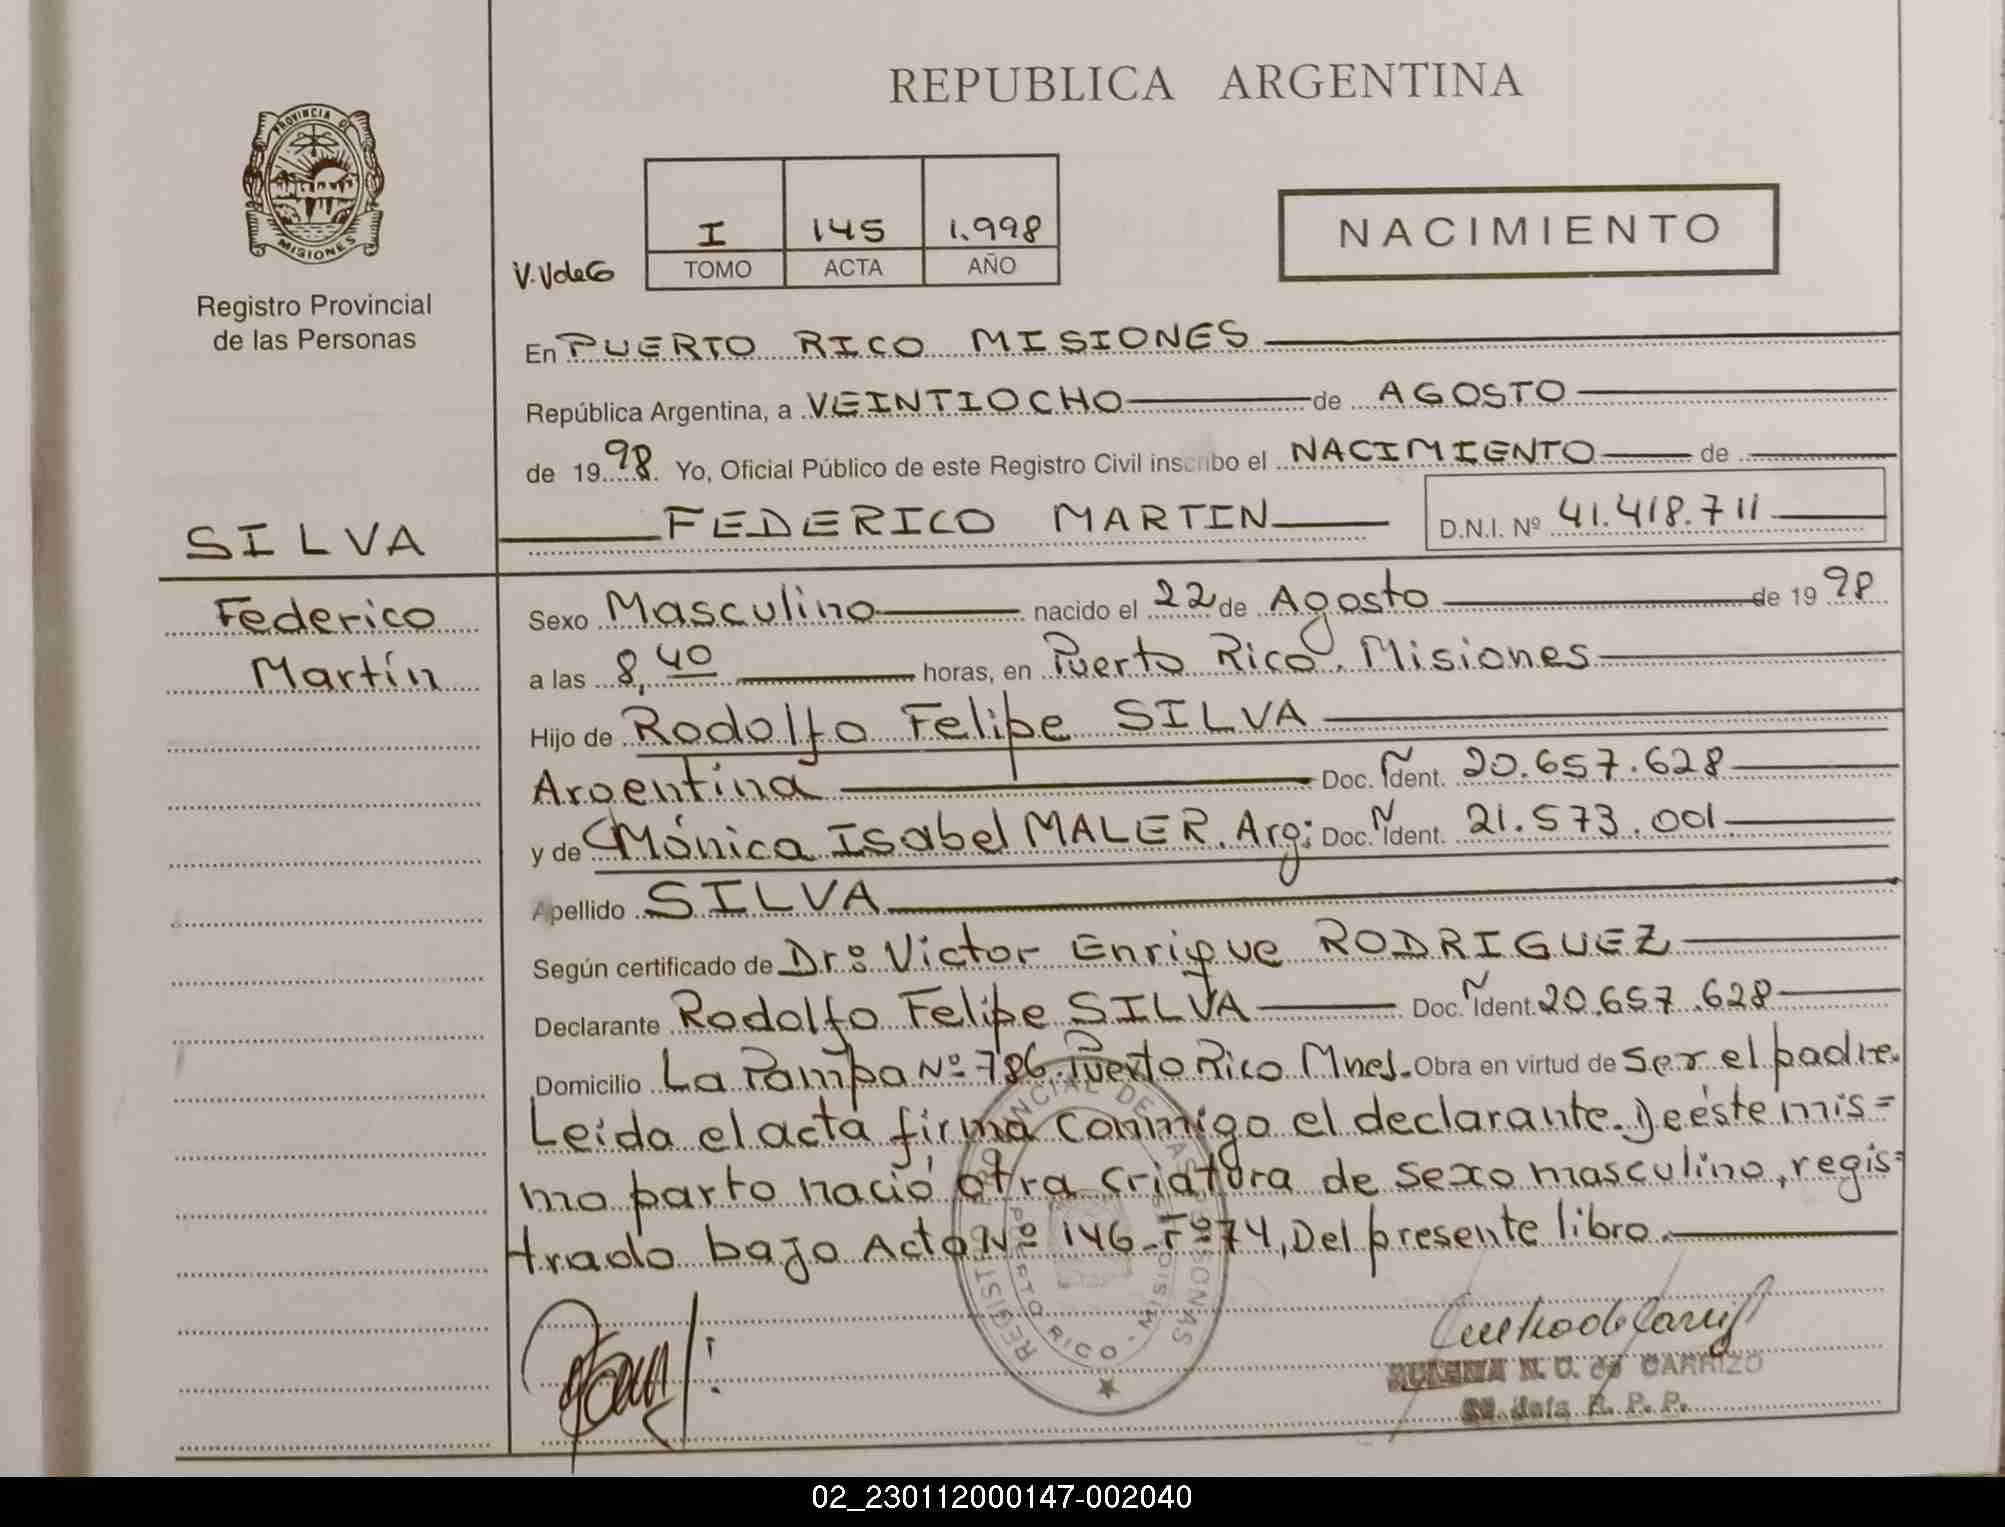 REPUBLICA ARGENTINA
PROVINCIA DE
MISIONES
Registro Provincial
de las Personas
V.VdeG
I 145 1.998
TOMO ACTA AÑO
NACIMIENTO
En PUERTO RICO MISIONES
República Argentina, a VEINTIOCHO de AGOSTO
de 1998. Yo, Oficial Público de este Registro Civil inscribo el NACIMIENTO de
SILVA
FEDERICO MARTIN D.N.I. Nº 41.418.711
Federico
Martín
Sexo Masculino nacido el 22 de Agosto de 1998
a las 8,40 horas, en Puerto Rico. Misiones
Hijo de Rodolfo Felipe SILVA
Argentina Doc. Ident. 20.657.628
y de Mónica Isabel MALER. Arg; Doc. Ident. 21.573.001
Apellido SILVA
Según certificado de Dr: Victor Enrique RODRIGUEZ
Declarante Rodolfo Felipe SILVA Doc. Ident. 20.657.628
Domicilio La Pampa Nº 786. Puerto Rico Mnes. Obra en virtud de ser el padre.
Leída el acta firma conmigo el declarante. De éste mis=
mo parto nació otra criatura de sexo masculino, regis=
trado bajo Acta Nº 146-Fº74, Del presente libro.
REGISTRO PROVINCIAL DE LAS PERSONAS
PUERTO RICO - MISIONES
N. C. de CARRIZO
Jefa R. P. P.
02_230112000147-002040